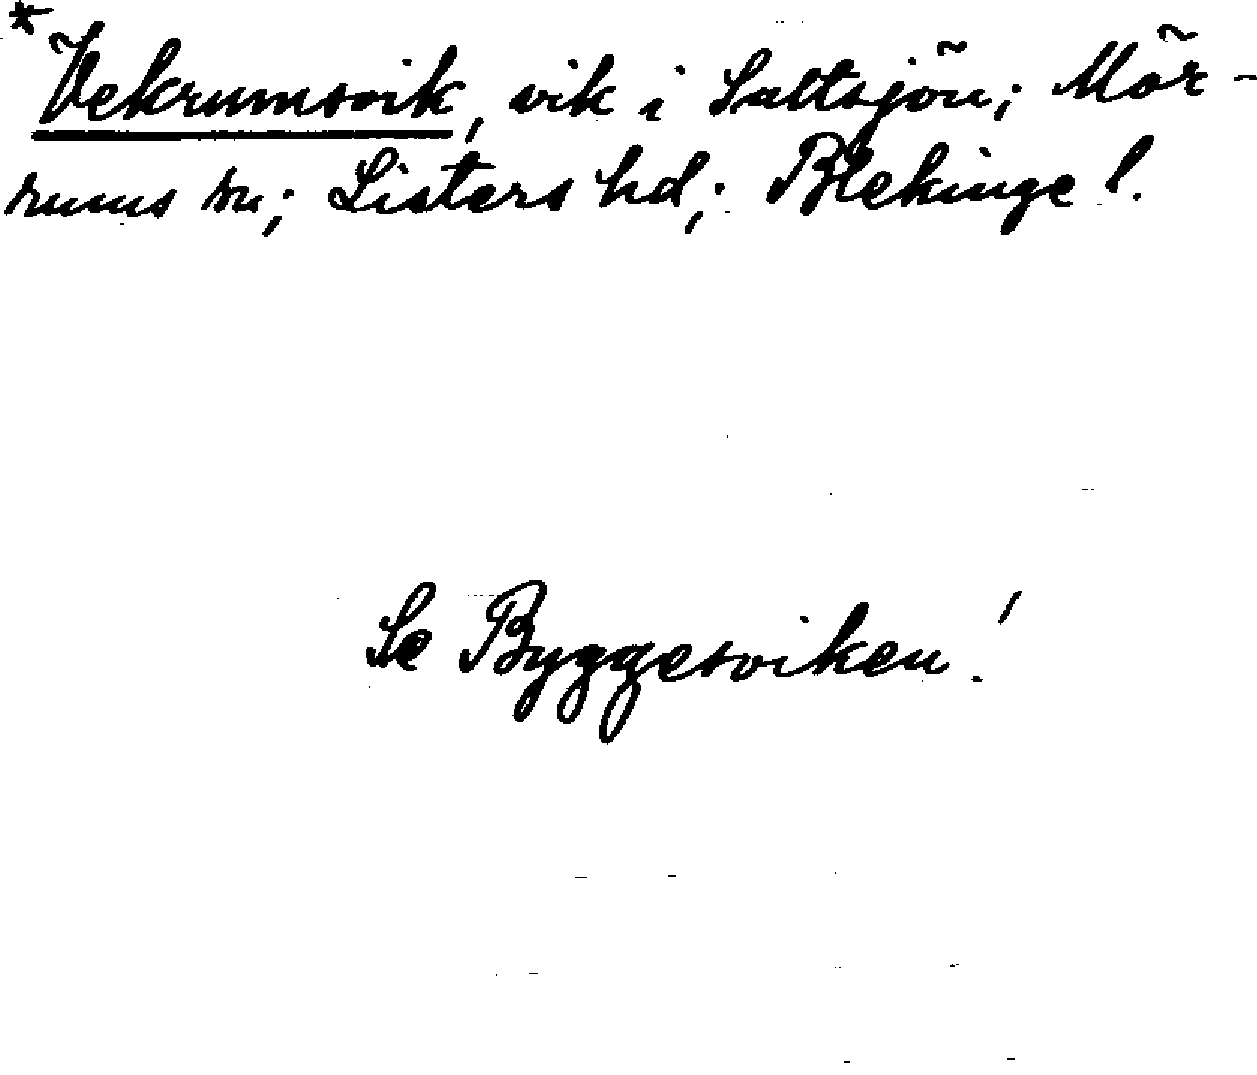 *Vekrumsvik, vik i Saltsjön; Mör-
rums sn; Listers hd; Blekinge l.
Se Byggesviken!